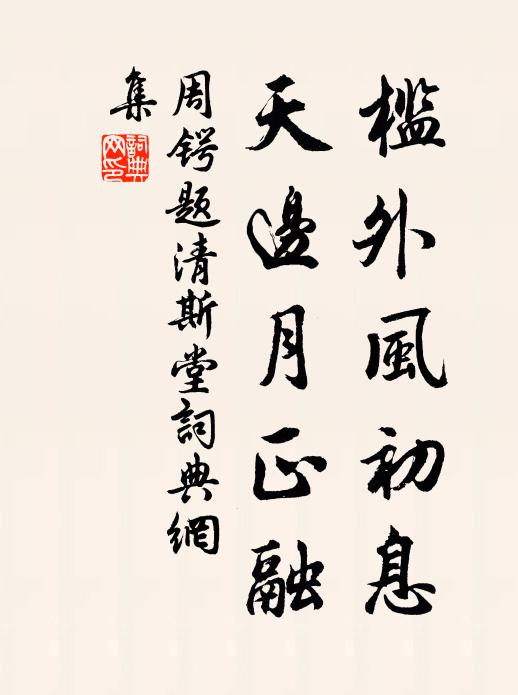 槛外風初息
天邊月正融
周锷题清斯堂詞典網
集
詞典網印